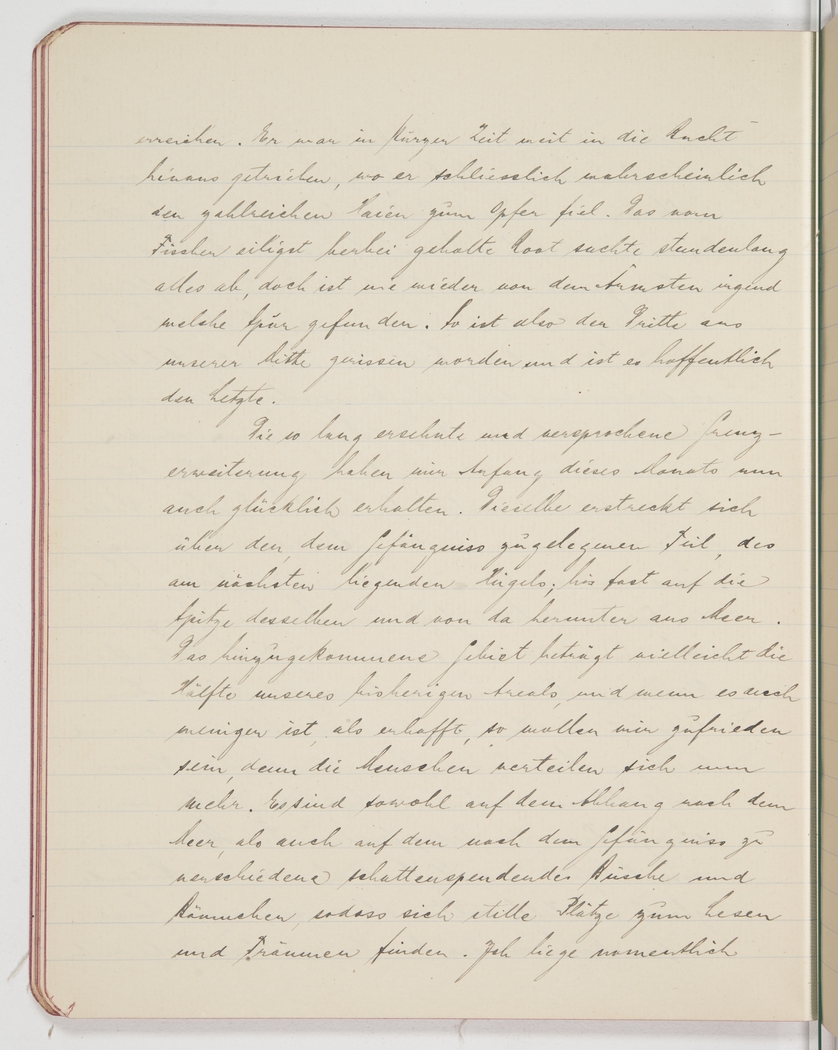 erreichen. Er war in kurzer Zeit weit in die Bucht
hinaus getrieben, wo er schliesslich wahrscheinlich
den zahlreichen Haien zum Opfer fiel. Das vom
Fischer eiligst herbei geholte Boot suchte stundenlang
alles ab, doch ist nie wieder von dem Ärmsten irgend
welche Spur gefunden. So ist also der Dritte aus
unserer Mitte gerissen worden und ist es hoffentlich
der Letzte.
Die so lang ersehnte und versprochene Grenz-
erweiterung haben wir Anfang dieses Monats nun
auch glücklich erhalten. Dieselbe erstreckt sich
über den, dem Gefängniss zugelegenen Teil, des
am nächsten liegenden Hügels; bis fast auf die
Spitze desselben und von da herunter ans Meer.
Das hinzugekommene Gebiet beträgt vielleicht die
Hälfte unseres bisherigen Areals, und wenn es auch
weniger ist, als erhofft, so wollen wir zufrieden
sein, denn die Menschen verteilen sich nun
mehr. Es sind sowohl auf dem Abhang nach dem
Meer, als auch auf dem nach dem Gefängniss zu
verschiedene schattenspendende Büsche und
Bäumchen, sodass sich stille Plätze zum Lesen
und Träumen finden. Ich liege namentlich